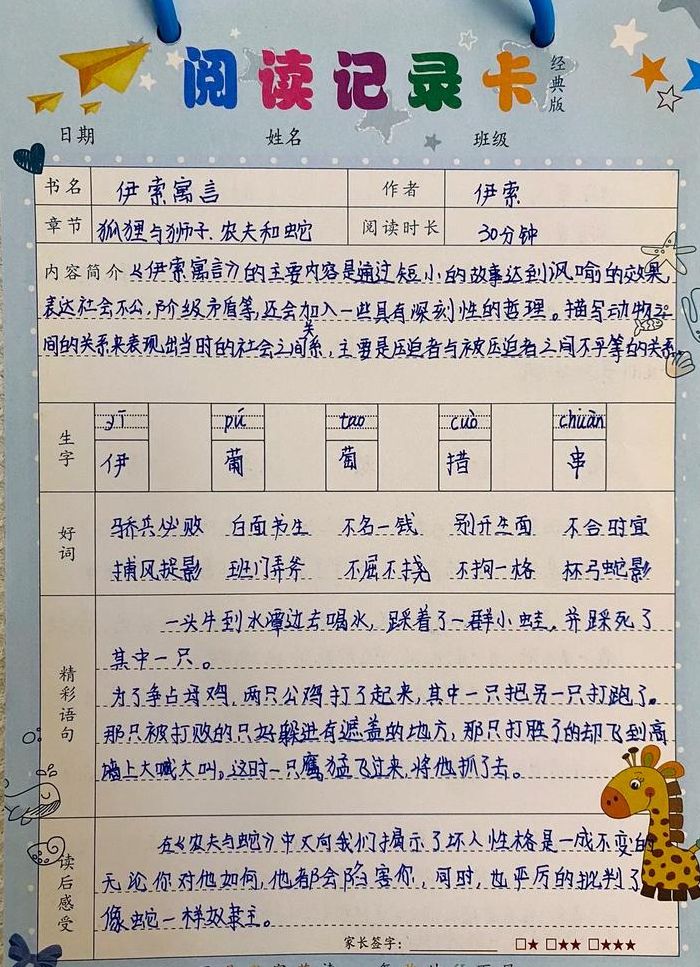 阅读记录卡 经典版
日期 姓名 班级
书名 伊索寓言 作者 伊索
章节 狐狸与狮子、农夫和蛇 阅读时长 30分钟
内容简介 《伊索寓言》的主要内容是通过短小的故事达到讽喻的效果,
表达社会不公,阶级矛盾等,还会加入一些具有深刻性的哲理。描写动物之
间的关系来表现出当时的社会之间关系,主要是压迫者与被压迫者之间不平等的关系。
生字
yī pú tao cuò chuàn
伊 葡 萄 措 串
好词
骄兵必败 白面书生 不名一钱 别开生面 不合时宜
捕风捉影 班门弄斧 不屈不挠 不拘一格 杯弓蛇影
精彩语句
一头牛到水潭边去喝水,踩着了一群小蛙,并踩死了
其中一只。
为了争占母鸡,两只公鸡打了起来,其中一只把另一只打跑了。
那只被打败的只好躲进有遮盖的地方,那只打胜了的却飞到高
墙上大喊大叫。这时一只鹰猛飞过来,将他抓了去。
读后感受
在《农夫与蛇》中又向我们揭示了坏人性格是一成不变的
无论你对他如何,他都会陷害你,同时,也严厉的批判了
像蛇一样奴隶主。
家长签字: □★ □★★ □★★★